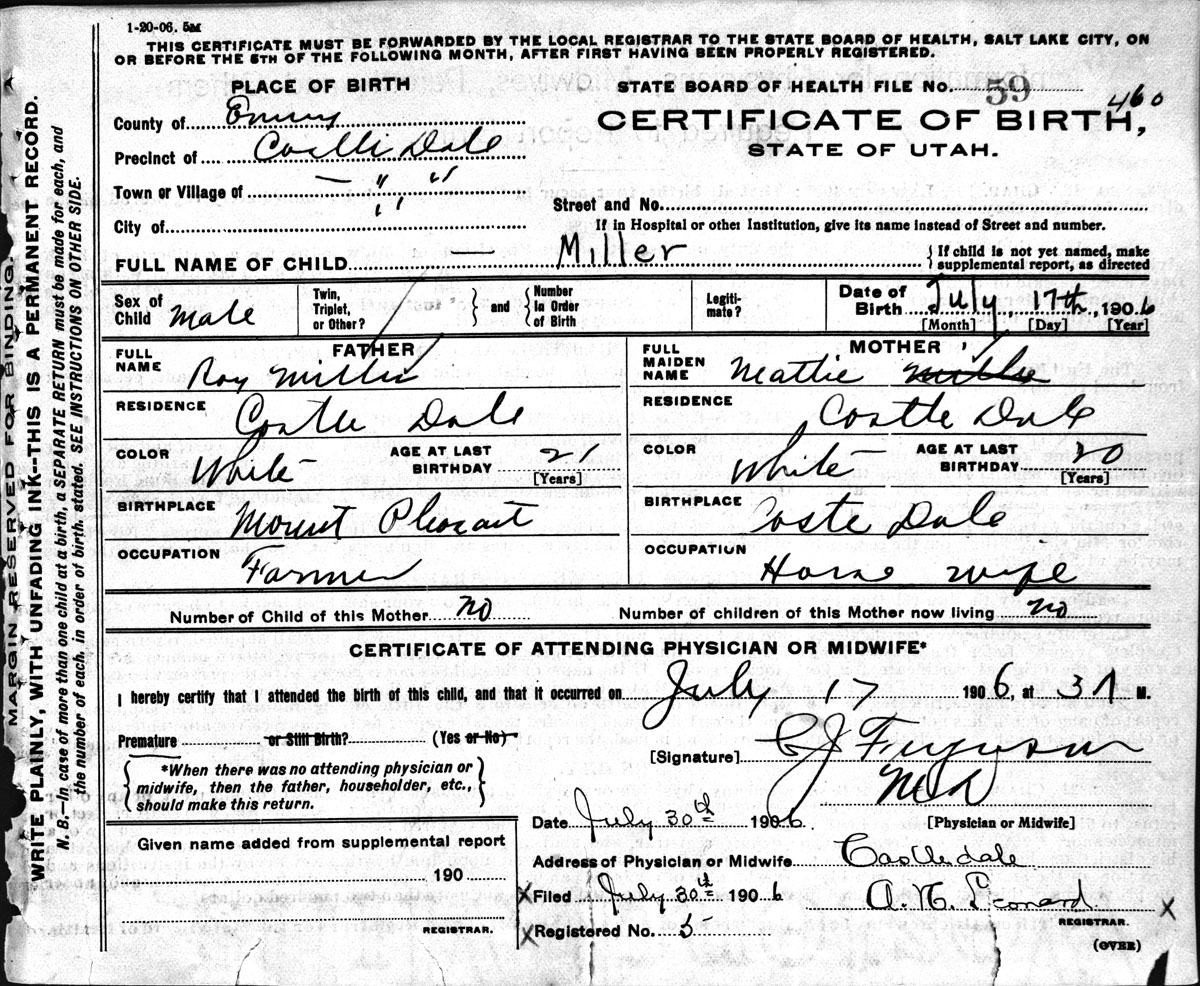 1-20-06. 5M
THIS CERTIFICATE MUST BE FORWARDED BY THE LOCAL REGISTRAR TO THE STATE BOARD OF HEALTH, SALT LAKE CITY, ON
OR BEFORE THE 5TH OF THE FOLLOWING MONTH, AFTER FIRST HAVING BEEN PROPERLY REGISTERED.
MARGIN RESERVED FOR BINDING.
WRITE PLAINLY, WITH UNFADING INK--THIS IS A PERMANENT RECORD.
N. B.--In case of more than one child at a birth, a SEPARATE RETURN must be made for each, and
the number of each, in order of birth, stated. SEE INSTRUCTIONS ON OTHER SIDE.
PLACE OF BIRTH
County of Emery
Precinct of Castle Dale
Town or Village of — " "
City of " "
STATE BOARD OF HEALTH FILE No. 59
460
CERTIFICATE OF BIRTH,
STATE OF UTAH.
Street and No.
If in Hospital or other Institution, give its name instead of Street and number.
FULL NAME OF CHILD — Miller
{ If child is not yet named, make
supplemental report, as directed
Sex of Child Male
Twin, Triplet, or Other? } and { Number In Order of Birth
Legiti-mate?
Date of Birth July, 17th, 1906
[Month] [Day] [Year]
FATHER
FULL NAME Roy Miller
RESIDENCE Castle Dale
COLOR White AGE AT LAST BIRTHDAY 21 [Years]
BIRTHPLACE Mount Pleasant
OCCUPATION Farmer
MOTHER
FULL MAIDEN NAME Mattie Miller
RESIDENCE Castle Dale
COLOR White AGE AT LAST BIRTHDAY 20 [Years]
BIRTHPLACE Caste Dale
OCCUPATION House wife
Number of Child of this Mother No Number of children of this Mother now living No
CERTIFICATE OF ATTENDING PHYSICIAN OR MIDWIFE*
I hereby certify that I attended the birth of this child, and that it occurred on July 17 1906, at 3 A M.
Premature or Still Birth? (Yes or No)
{ *When there was no attending physician or
midwife, then the father, householder, etc.,
should make this return. }
[Signature] C J Ferguson
M D
[Physician or Midwife]
Date July 30th 1906
Given name added from supplemental report
190
REGISTRAR.
Address of Physician or Midwife Castledale
X Filed July 30th 1906 A. N. Leonard X
REGISTRAR.
X Registered No. 5
(OVER)